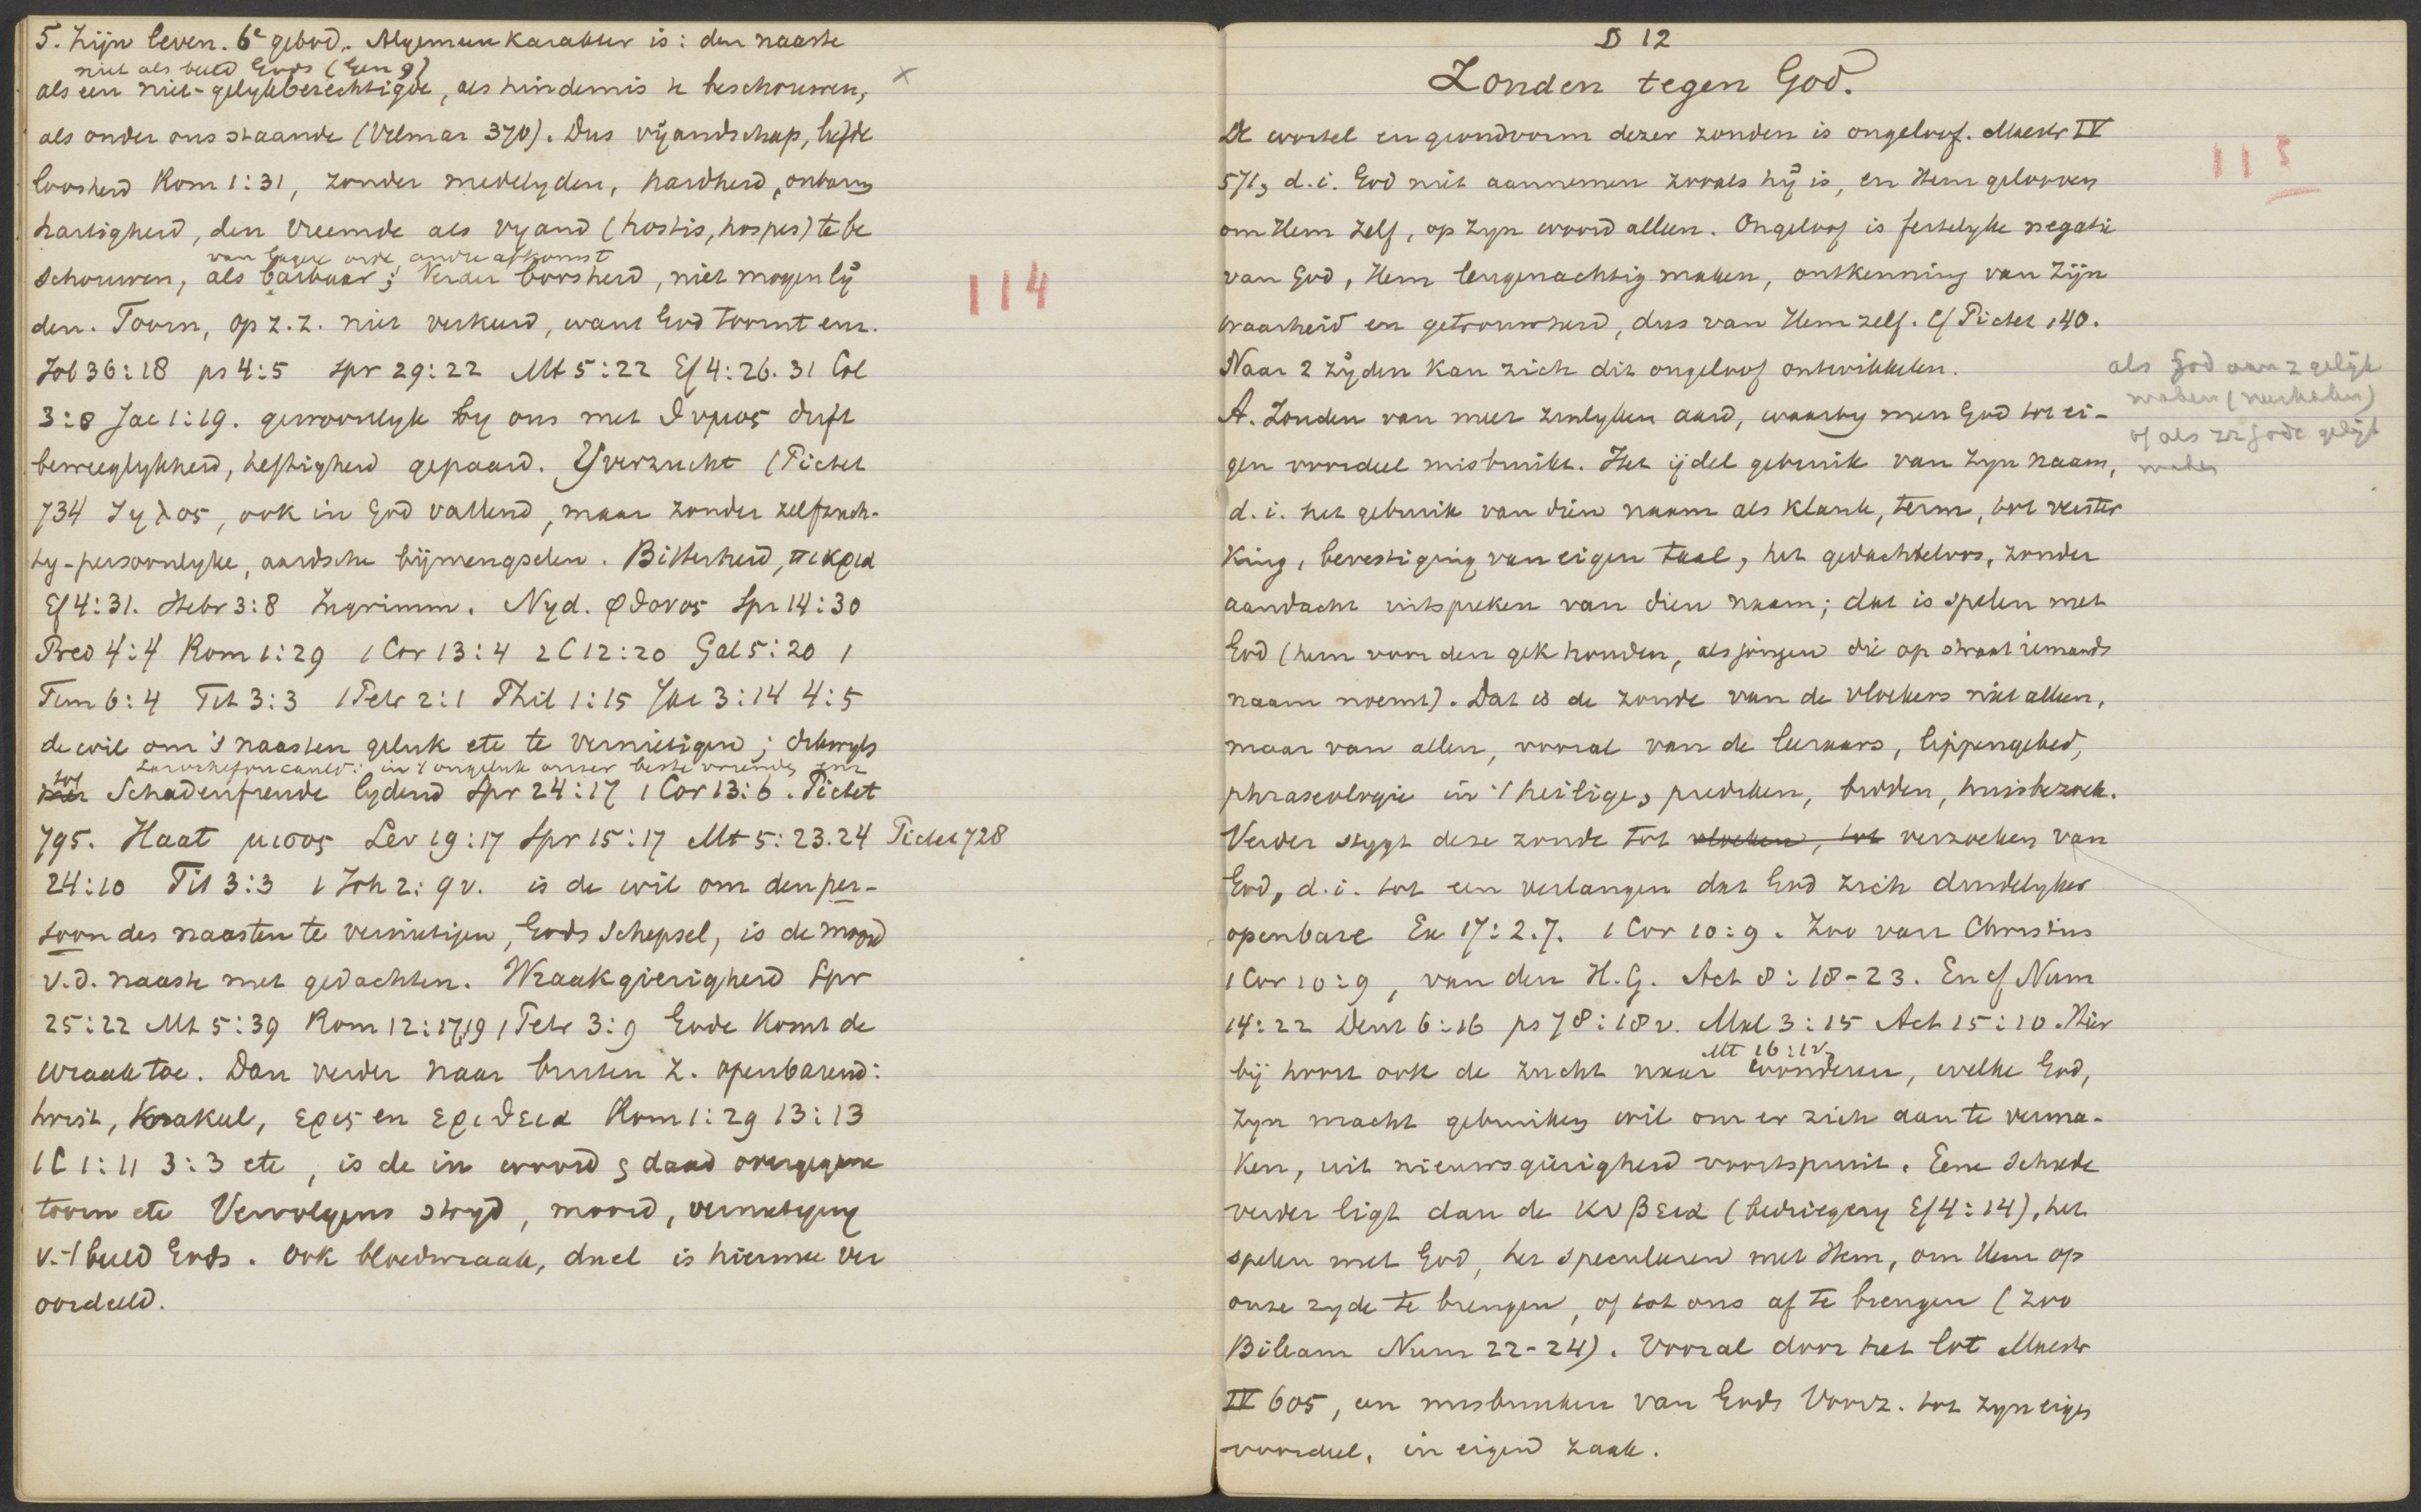 5. Zijn leven. 6e gebod. Algemeen karakter is: den naaste
niet als beeld Gods (Gen 9)
als een niet-gelykberechtigde, als hindernis te beschouwen, x
als onder ons staande (Vilmar 370). Dus vijandschap, liefde
loosheid Rom 1:31, zonder medelyden, hardheid, onbarm
hartigheid, den vreemde als vyand (hostis, hospes) te be
van lagere orde, andre afkomst
schouwen, als barbaar; Verder boosheid, niet mogen lij
den. Toorn, op z.z. niet verkeerd, want God toornt enz.
114
Job 36:18 ps 4:5 spr 29:22 Mt 5:22 Ef 4:26.31 Col
3:8 Jac 1:19. gewoonlyk by ons met θυμος drift
beweeglykheid, heftigheid gepaard. Yverzucht (Pictet
734 ζηλος, ook in God vallend, maar zonder zelfzuch-
ty-persoonlyke, aardsche bijmengselen. Bitterheid, πικρια
Ef 4:31. Hebr 3:8 Ingrimm. Nyd. φθονος Spr 14:30
Pred 4:4 Rom 1:29 1 Cor 13:4 2 C 12:20 Gal 5:20 1
Tim 6:4 Tit 3:3 1 Petr 2:1 Phil 1:15 Jac 3:14 4:5
de wil om 's naasten geluk etc te vernietigen; dikwyls
Larochefoucauld: in 't ongeluk onzer beste vrienden enz
tot
met Schadenfreude lydend Spr 24:17 1 Cor 13:6. Pictet
795. Haat μισος Lev 19:17 Spr 15:17 Mt 5:23.24 Pictet 728
24:10 Tit 3:3 1 Joh 2:9v. is de wil om den per-
soon des naasten te vernietigen, Gods schepsel, is de moord
v.d. naaste met gedachten. Wraakgierigheid Spr
25:22 Mt 5:39 Rom 12:17,19 1 Petr 3:9 Gode komt de
wraak toe. Dan verder naar buiten z. openbarend:
twist, Krakeel, ερις en εριθεια Rom 1:29 13:13
1 C 1:11 3:3 etc, is de in woord & daad overgegane
toorn etc Vervolgens stryd, moord, vernietiging
v. 't beeld Gods. Ook bloedwraak, duel is hiermee ver
oordeeld.
D 12
Zonden tegen God.
De wortel en grondvorm dezer zonden is ongeloof. Maestr IV
115
571, d.i. God niet aannemen zooals hij is, en Hem gelooven
om Hem zelf, op zyn woord alleen. Ongeloof is feitelyke negatie
van God, Hem leugenachtig maken, ontkenning van Zijn
waarheid en getrouwheid, dus van Hem zelf. Cf Pictet 140.
Naar 2 zijden kan zich dit ongeloof ontwikkelen.
als God aan z gelijk
maken (neerhalen)
of als zz Gode gelijk
maken
A. Zonden van meer zinlyken aard, waarby men God tot ei-
gen voordeel misbruikt. Het ijdel gebruik van Zyn Naam,
d.i. het gebruik van dien naam als klank, term, tot verster
king, bevestiging van eigen taal, het gedachteloos, zonder
aandacht uitspreken van dien naam; dat is spelen met
God (hem voor den gek houden, als jongen die op straat iemands
naam noemt). Dat is de zonde van de vloekers niet alleen,
maar van allen, vooral van de leeraars, lippengebed,
phraseologie in 't heilige, prediken, bidden, huisbezoek.
Verder stygt deze zonde tot vloeken, tot verzoeken van
God, d.i. tot een verlangen dat God zich duidelyker
openbare Ex 17:2.7. 1 Cor 10:9. Zoo van Christus
1 Cor 10:9, van den H.G. Act 8:18-23. En cf Num
14:22 Deut 6:16 ps 78:18v. Mal 3:15 Act 15:10. Hier
Mt 16:1v
bij hoort ook de zucht naar wonderen, welke God,
Zyn macht gebruiken wil om er zich aan te verma-
ken, uit nieuwsgierigheid voortspruit. Eene schrede
verder ligt dan de κυβεια (bedriegery Ef 4:14), het
spelen met God, het speculeren met Hem, om Hem op
onze zyde te brengen, of tot ons af te brengen (zoo
Bileam Num 22-24). Vooral door het lot Maestr
IV 605, en misbruiken van Gods Voorz. tot zyn eigen
voordeel, in eigen zaak.